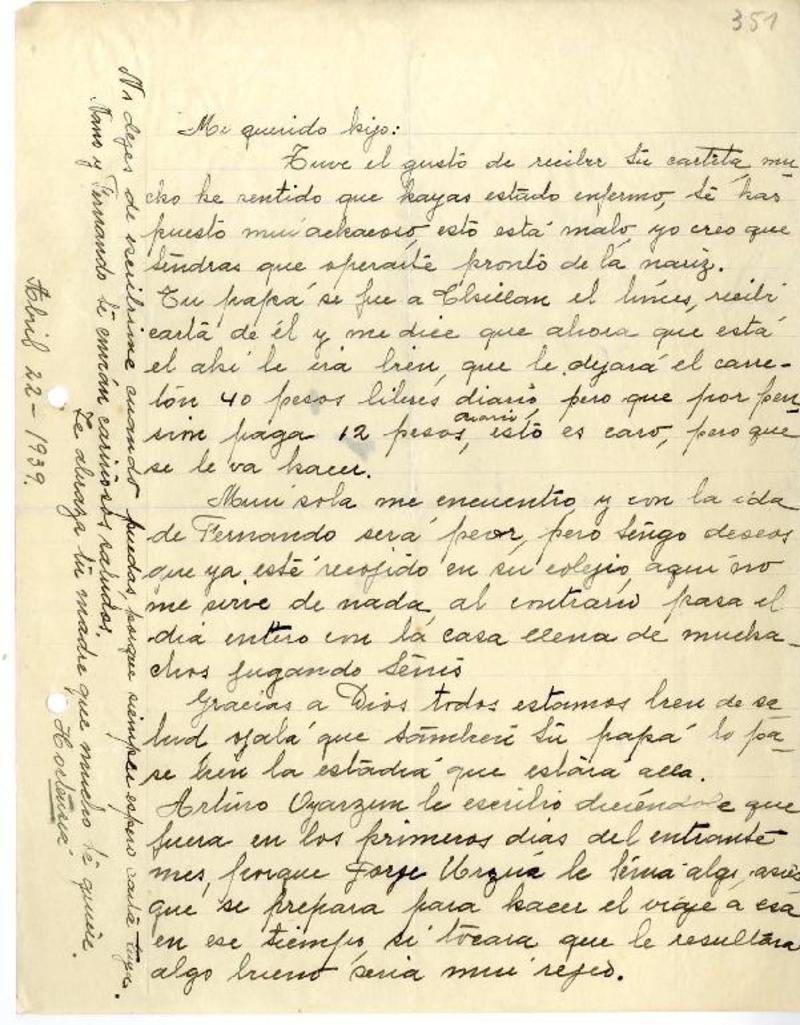 351
Mi querido hijo:
Tuve el gusto de recibir tu cartita, mu-
cho he sentido que hayas estado enfermo, te has
puesto mui achacoso, esto está malo, yo creo que
tendras que operarte pronto de la nariz.
Tu papá se fue a Chillan el lunes, recibí
carta de él y me dice que ahora que está
el ahí le irá bien, que le dejará el carre-
tón 40 pesos libres diario, pero que por pen-
sión paga 12 pesos diario, esto es caro, pero que
se le va hacer.
Mui sola me encuentro y con la ida
de Fernando será peor, pero tengo deseos
que ya esté recojido en su colejio, aquí no
me sirve de nada, al contrario pasa el
día entero con la casa llena de mucha-
chos jugando tenis
Gracias a Dios todos estamos bien de sa
lud ojalá que tambien tu papá lo pa-
se bien la estadía que estará allá.
Arturo Oyarzun le escribio diciéndole que
fuera en los primeros dias del entrante
mes, porque Jorje Urzúa le tenía algo, asies
que se prepara para hacer el viaje a esa
en ese tiempo, si tocara que le resultara
algo bueno seria mui rejio.
No dejes de escribirme cuando puedas, porque siempre espero carta tuya.
Nano y Fernando te envían cariñosos saludos.
Te abraza tu madre que mucho te quiere.
Hortensia
Abril 22-1939.